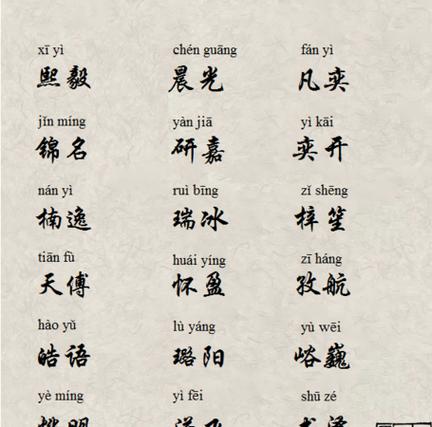 xī yì chén guāng fán yì
熙毅 晨光 凡奕
jǐn míng yàn jiā yì kāi
锦名 研嘉 奕开
nán yì ruì bīng zǐ shēng
楠逸 瑞冰 梓笙
tiān fù huái yíng zī háng
天傅 怀盈 孜航
hào yǔ lù yáng yù wēi
皓语 璐阳 峪巍
yè míng yì fēi shū zé